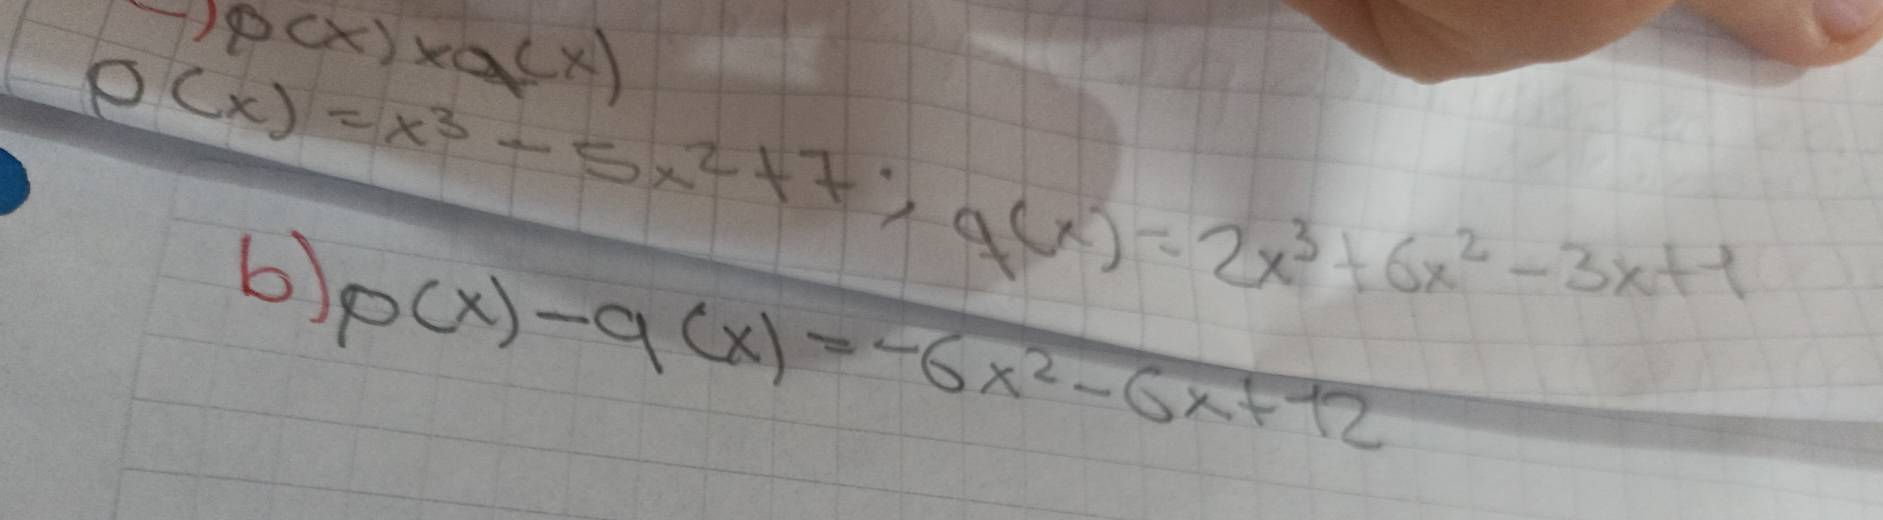 ) p(x) x q(x)
p(x) = x³ - 5x² + 7 ; q(x) = 2x³ + 6x² - 3x + 1
b) p(x) - q(x) = -6x² - 6x + 12